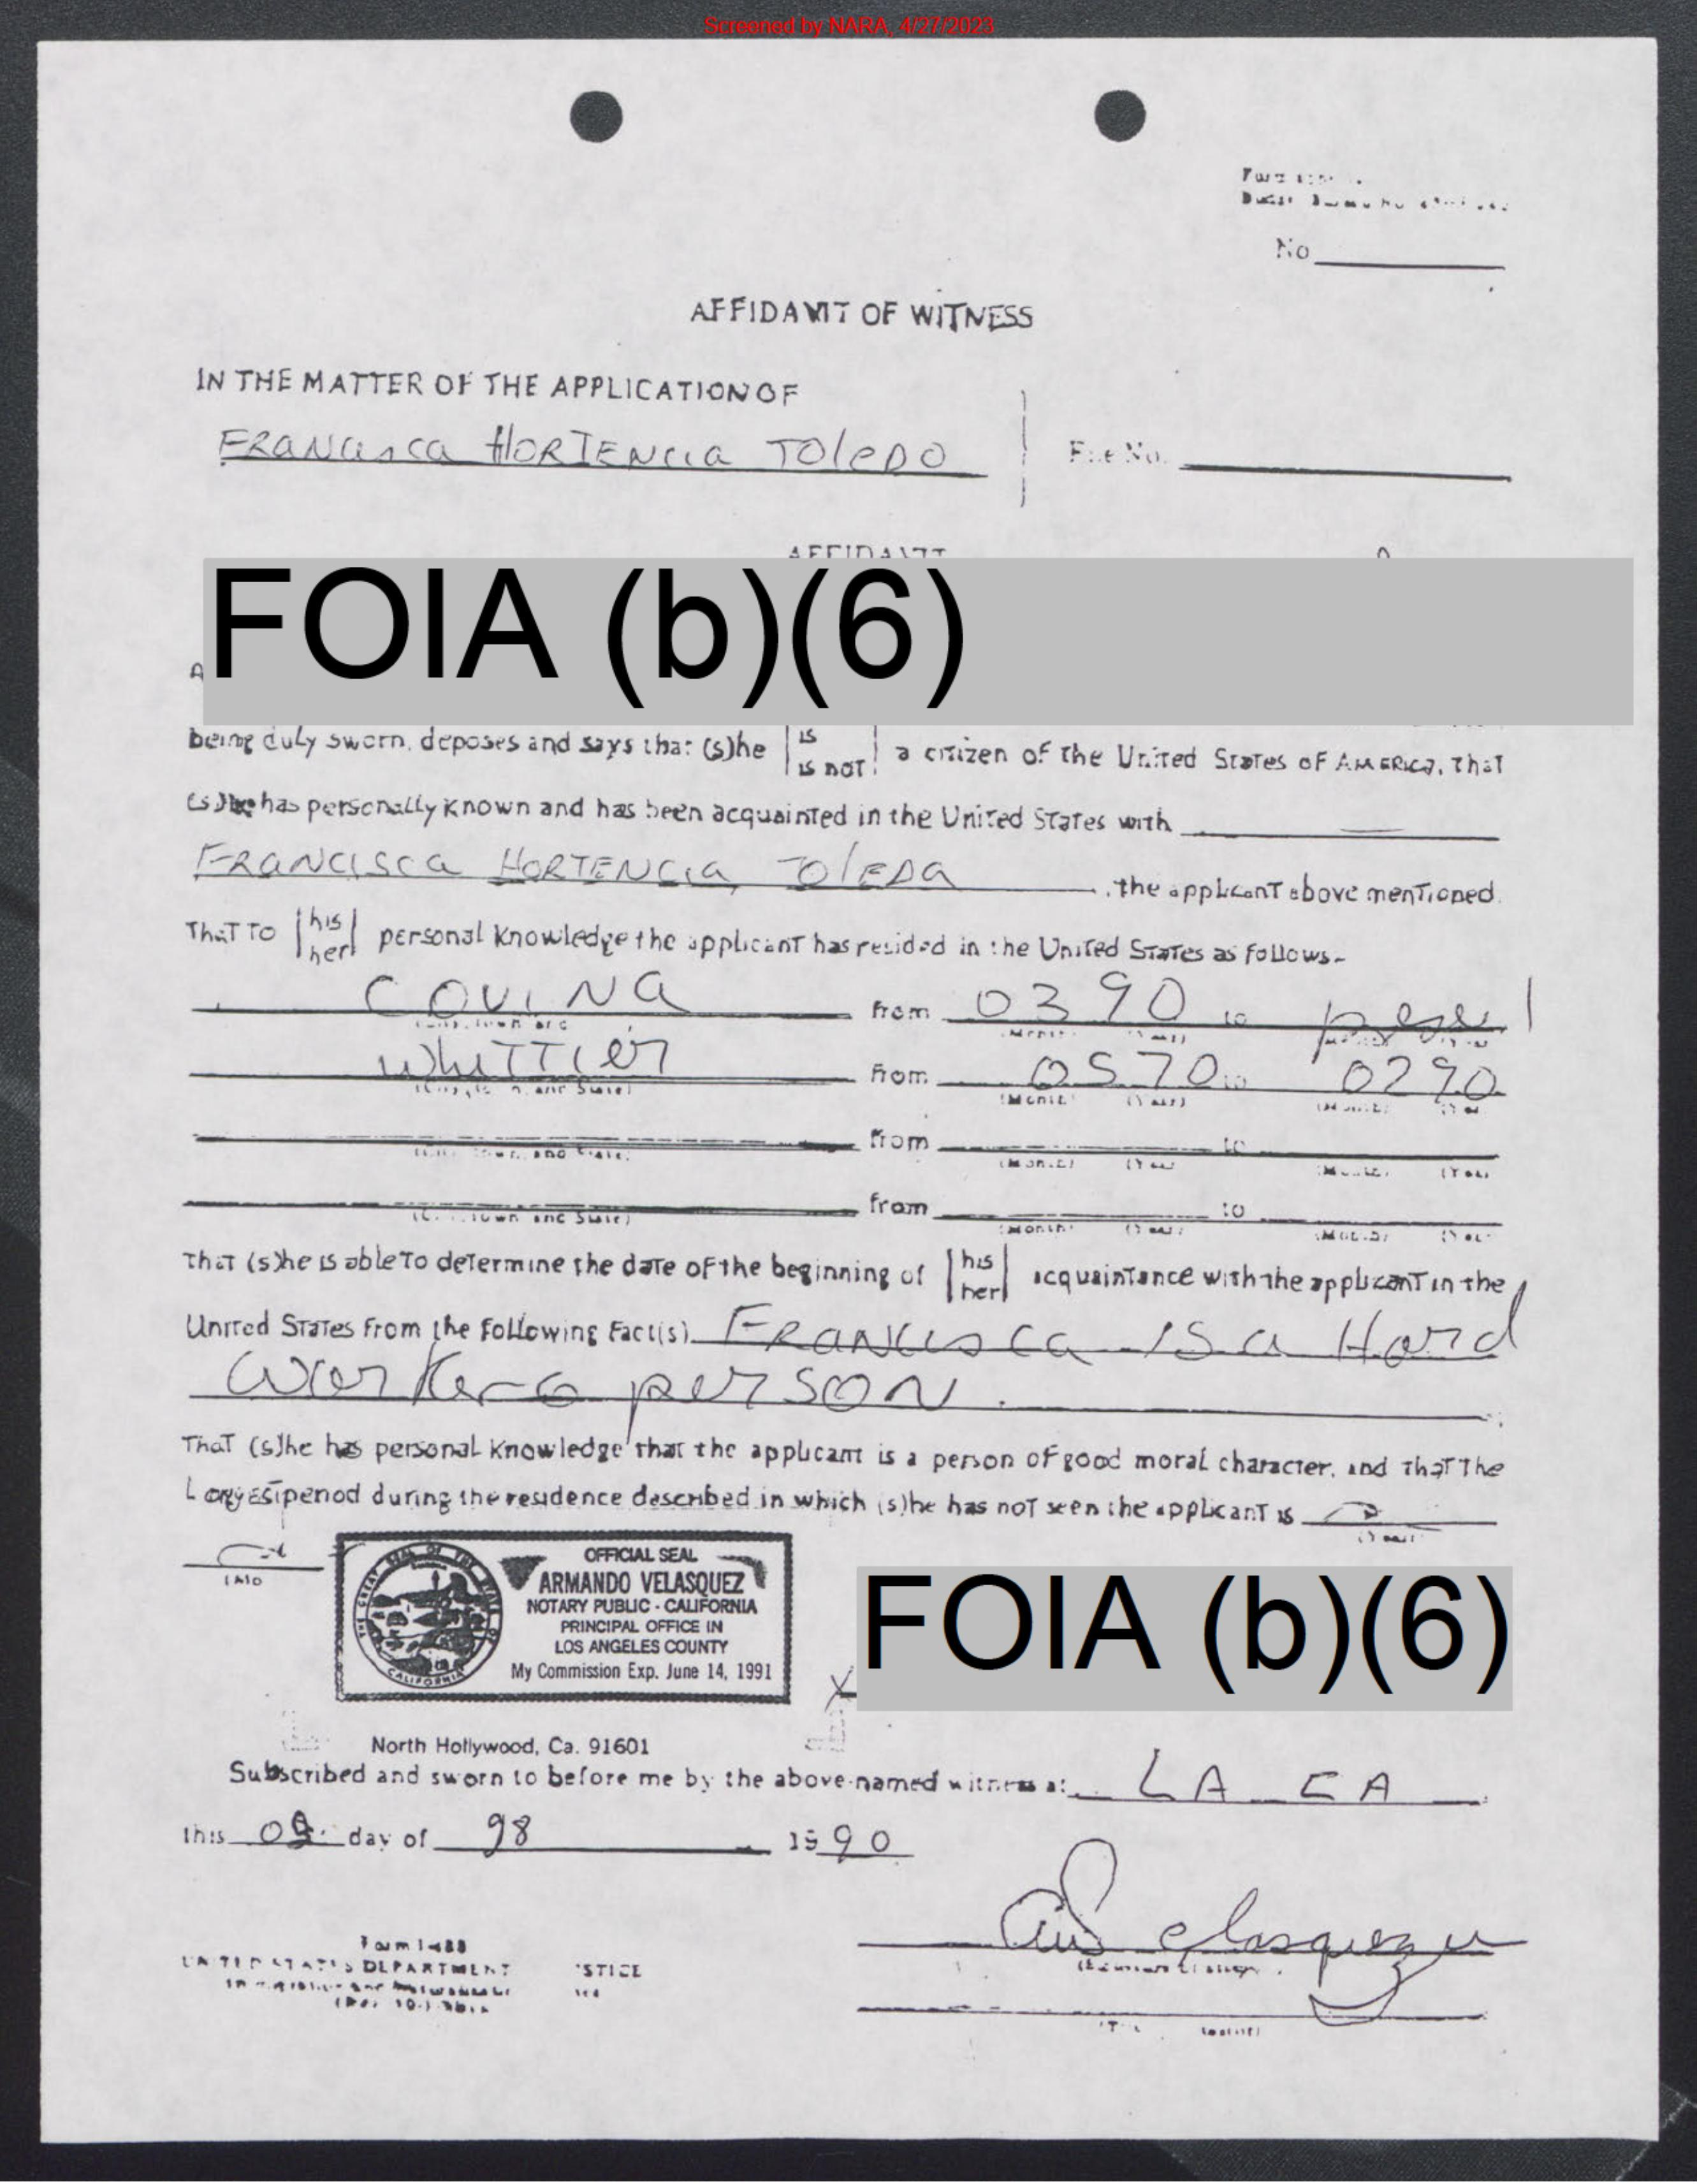 Screened by NARA, 4/27/2023
No
AFFIDAVIT OF WITNESS
IN THE MATTER OF THE APPLICATION OF
FRANCISCA HORTENCIA TOLEDO
File No.
AFFIDAVIT
FOIA (b)(6)
being duly sworn, deposes and says that (s)he is a citizen of the United States of AMERICA, that
is not
(s)he has personally known and has been acquainted in the United States with
FRANCISCA HORTENCIA TOLEDA , the applicant above mentioned.
That to his personal knowledge the applicant has resided in the United States as follows-
her
COVINA from 0390 to
(Month) (Year)
WhiTTier from 0570 to 0290
(City, Town, and State) (Month) (Year) (Month) (Year)
from to
(City, Town, and State) (Month) (Year) (Month) (Year)
from to
(City, Town and State) (Month) (Year) (Month) (Year)
That (s)he is able to determine the date of the beginning of his acquaintance with the applicant in the
her
United States from the following fact(s) FRANCISCA IS a Hard
person.
That (s)he has personal knowledge that the applicant is a person of good moral character, and that the
Longest period during the residence described in which (s)he has not seen the applicant is
(Years)
OFFICIAL SEAL
ARMANDO VELASQUEZ
NOTARY PUBLIC - CALIFORNIA
PRINCIPAL OFFICE IN
LOS ANGELES COUNTY
My Commission Exp. June 14, 1991
FOIA (b)(6)
X
North Hollywood, Ca. 91601
Subscribed and sworn to before me by the above-named witness at: LA CA
this day of 98 1990
UNITED STATES DEPARTMENT STICE